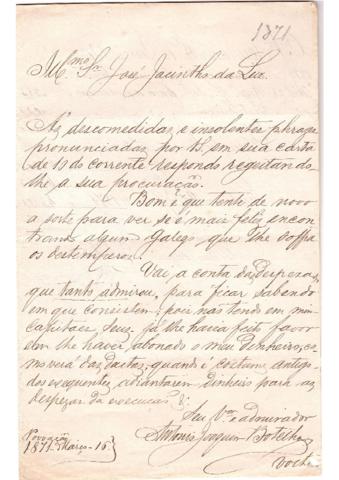 1871
Illmo Sr. José Jacintho da Luz.
Ás descomedidas e insolentes phrases
pronunciadas por VS. em sua carta
de 10 do corrente respondo regeitando-
lhe a sua procuração.
Bom é que tente de novo
a sorte para ver se é mais feliz encon
trando algum Galego que lhe soffra
os destemperos.
Vae a conta da despeza
que tanto admirou, para ficar sabendo
em que consistem, pois não tendo em mim
capitaes seus já lhe havia feito favor
em lhe haver abonado o meu dinheiro, co-
mo verá das datas, quando é costume antigo
dos exequentes adiantarem dinheiro para as
despezas da execução.
Seu Vor. e admirador
Antonio Joaquim Botelho
Povoação
1871 Março - 15